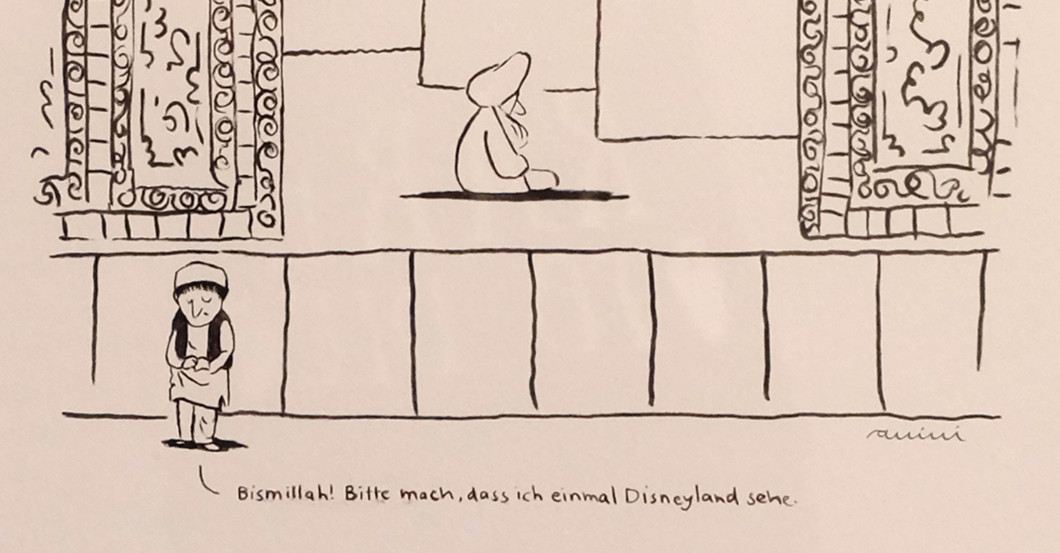 amini
Bismillah! Bitte mach, dass ich einmal Disneyland sehe.